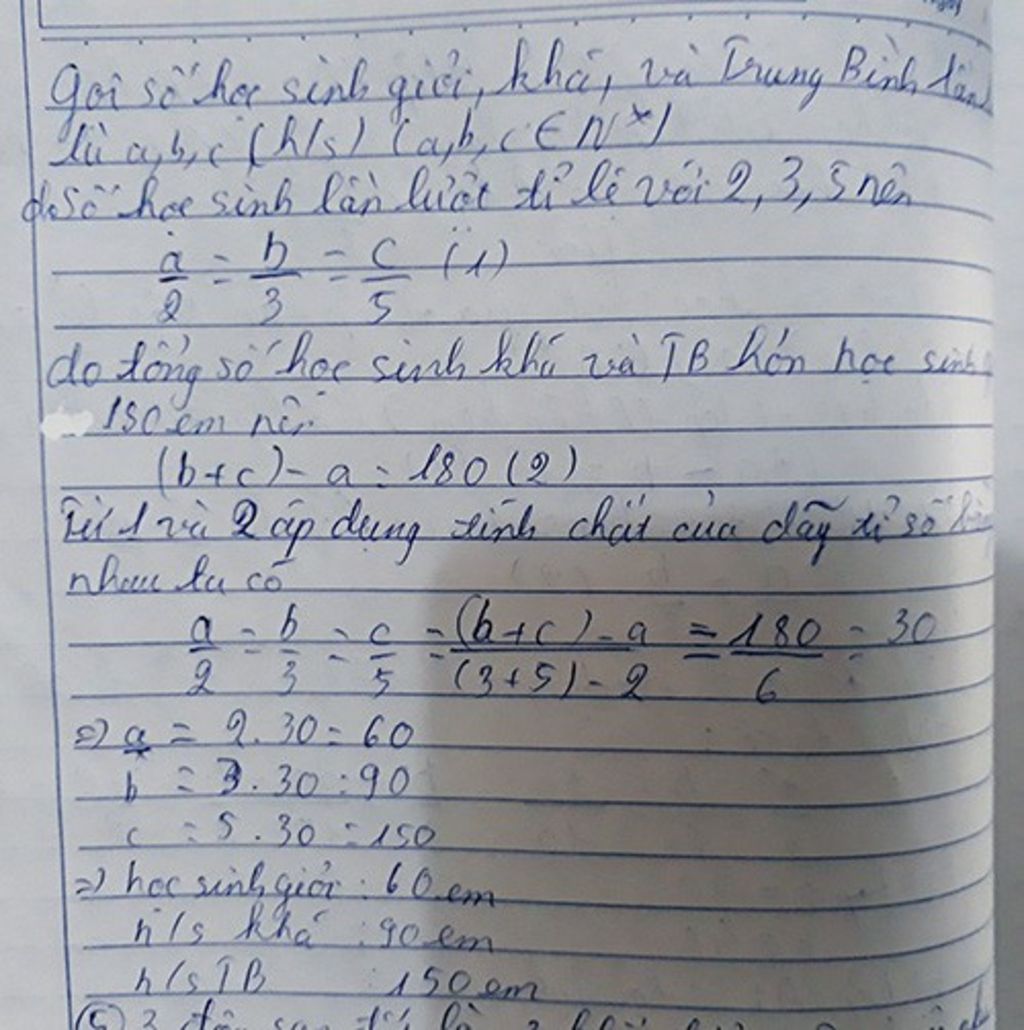 gọi số học sinh giỏi, khá, và Trung Bình lần
lù a, b, c (h/s) (a, b, c ∈ N*)
do số học sinh lần lượt tỉ lệ với 2, 3, 5 nên
a/2 = b/3 = c/5 (1)
do tổng số học sinh khá và TB hơn học sinh
180 em nên
(b+c) - a = 180 (2)
Từ 1 và 2 áp dụng tính chất của dãy tỉ số
nhau ta có
a/2 = b/3 = c/5 = (b+c)-a/(3+5)-2 = 180/6 = 30
=) a = 2.30 = 60
b = 3.30 = 90
c = 5.30 = 150
=) học sinh giỏi : 60 em
h/s khá : 90 em
h/s TB 150 em
(5) 3